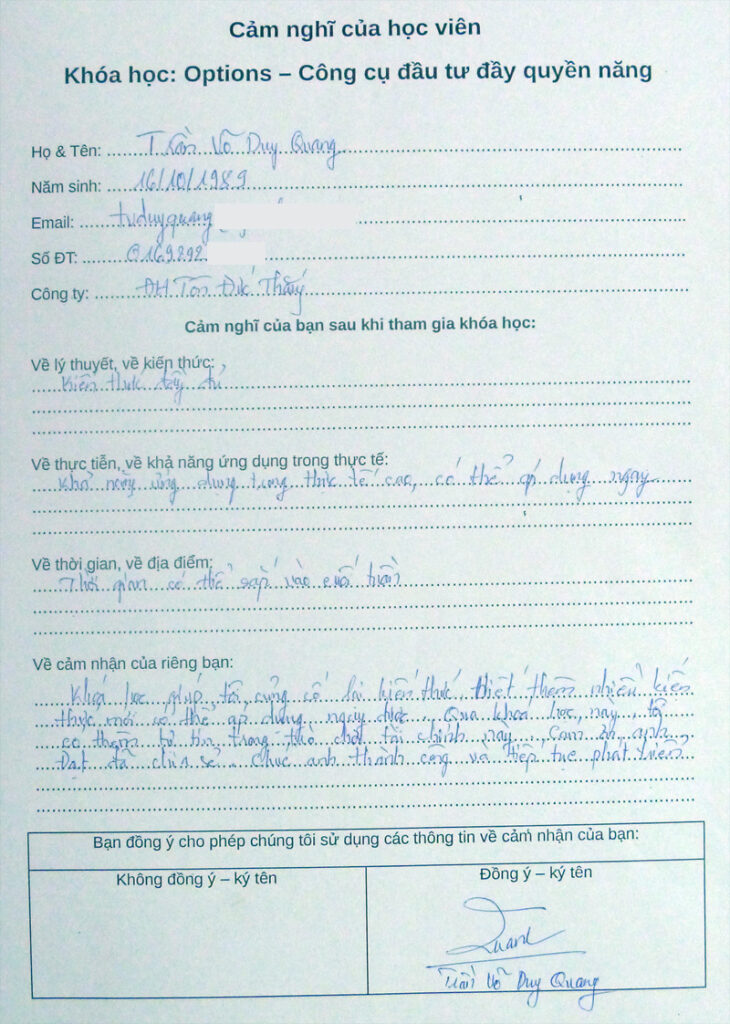 Cảm nghĩ của học viên
Khóa học: Options – Công cụ đầu tư đầy quyền năng
Họ & Tên: Trần Võ Duy Quang
Năm sinh: 16/10/1989
Email: tvduyquang
Số ĐT: 0169292
Công ty: ĐH Tôn Đức Thắng
Cảm nghĩ của bạn sau khi tham gia khóa học:
Về lý thuyết, về kiến thức:
Kiến thức đầy đủ
Về thực tiễn, về khả năng ứng dụng trong thực tế:
Khả năng ứng dụng trong thực tế cao, có thể áp dụng ngay
Về thời gian, về địa điểm:
Thời gian có thể sắp vào cuối tuần
Về cảm nhận của riêng bạn:
Khoá học giúp tôi củng cố lại kiến thức, biết thêm nhiều kiến
thức mới có thể áp dụng ngay được. Qua khoá học này, tôi
có thêm tự tin trong trò chơi tài chính này. Cảm ơn anh
Đạt đã chia sẻ. Chúc anh thành công và tiếp tục phát triển
Bạn đồng ý cho phép chúng tôi sử dụng các thông tin về cảm nhận của bạn:
Không đồng ý – ký tên
Đồng ý – ký tên
Trần Võ Duy Quang